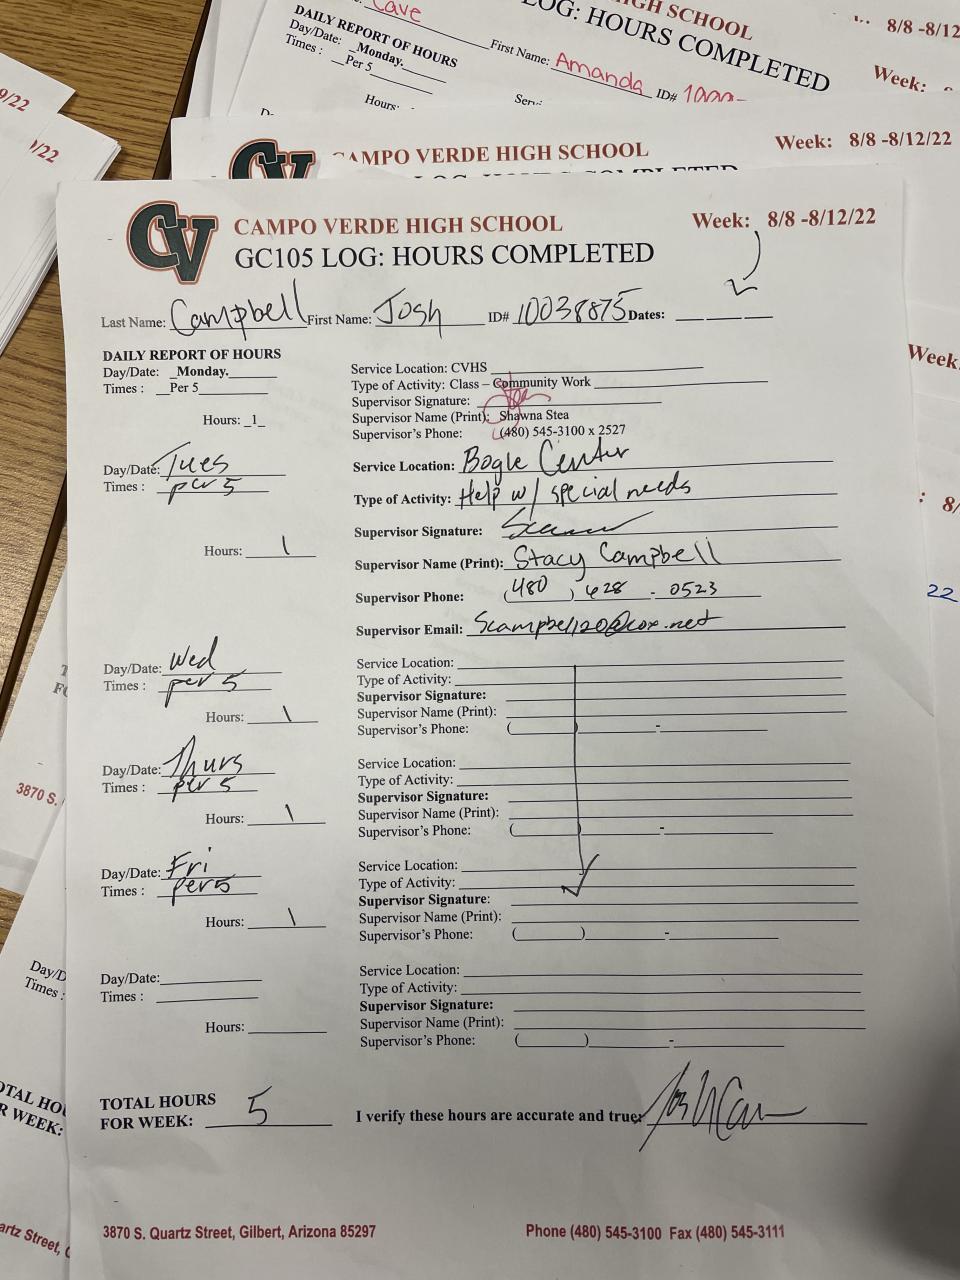 9/22
)/22
Cave
HIGH SCHOOL
8/8 -8/12
LOG: HOURS COMPLETED
Week:
DAILY REPORT OF HOURS
Day/Date: _Monday.
Times: __Per 5
First Name: Amanda ID#
Hours:
CAMPO VERDE HIGH SCHOOL
Week: 8/8 -8/12/22
CV
CAMPO VERDE HIGH SCHOOL
Week: 8/8 -8/12/22
GC105 LOG: HOURS COMPLETED
Last Name: Campbell First Name: Josh ID# 10038875 Dates: ___ ___ ___
DAILY REPORT OF HOURS
Day/Date: _Monday.
Times : __Per 5
Hours: _1_
Service Location: CVHS
Type of Activity: Class – Community Work
Supervisor Signature:
Supervisor Name (Print): Shawna Stea
Supervisor's Phone: (480) 545-3100 x 2527
Day/Date: Tues
Times : per 5
Hours: 1
Service Location: Bogle Center
Type of Activity: Help w/ special needs
Supervisor Signature:
Supervisor Name (Print): Stacy Campbell
Supervisor Phone: (480) 628 - 0523
Supervisor Email: Scampbell20@cox.net
Day/Date: Wed
Times : per 5
Hours: 1
Service Location:
Type of Activity:
Supervisor Signature:
Supervisor Name (Print):
Supervisor's Phone: ( ) -
Day/Date: Thurs
Times : per 5
Hours: 1
Service Location:
Type of Activity:
Supervisor Signature:
Supervisor Name (Print):
Supervisor's Phone: ( ) -
Day/Date: Fri
Times : per 5
Hours: 1
Service Location:
Type of Activity:
Supervisor Signature:
Supervisor Name (Print):
Supervisor's Phone: ( ) -
Day/Date:
Times :
Hours:
Service Location:
Type of Activity:
Supervisor Signature:
Supervisor Name (Print):
Supervisor's Phone: ( ) -
TOTAL HOURS
FOR WEEK: 5
I verify these hours are accurate and true:
3870 S. Quartz Street, Gilbert, Arizona 85297
Phone (480) 545-3100 Fax (480) 545-3111
Week
22
3870 S.
Day/D
Times :
OTAL HOU
R WEEK:
artz Street,